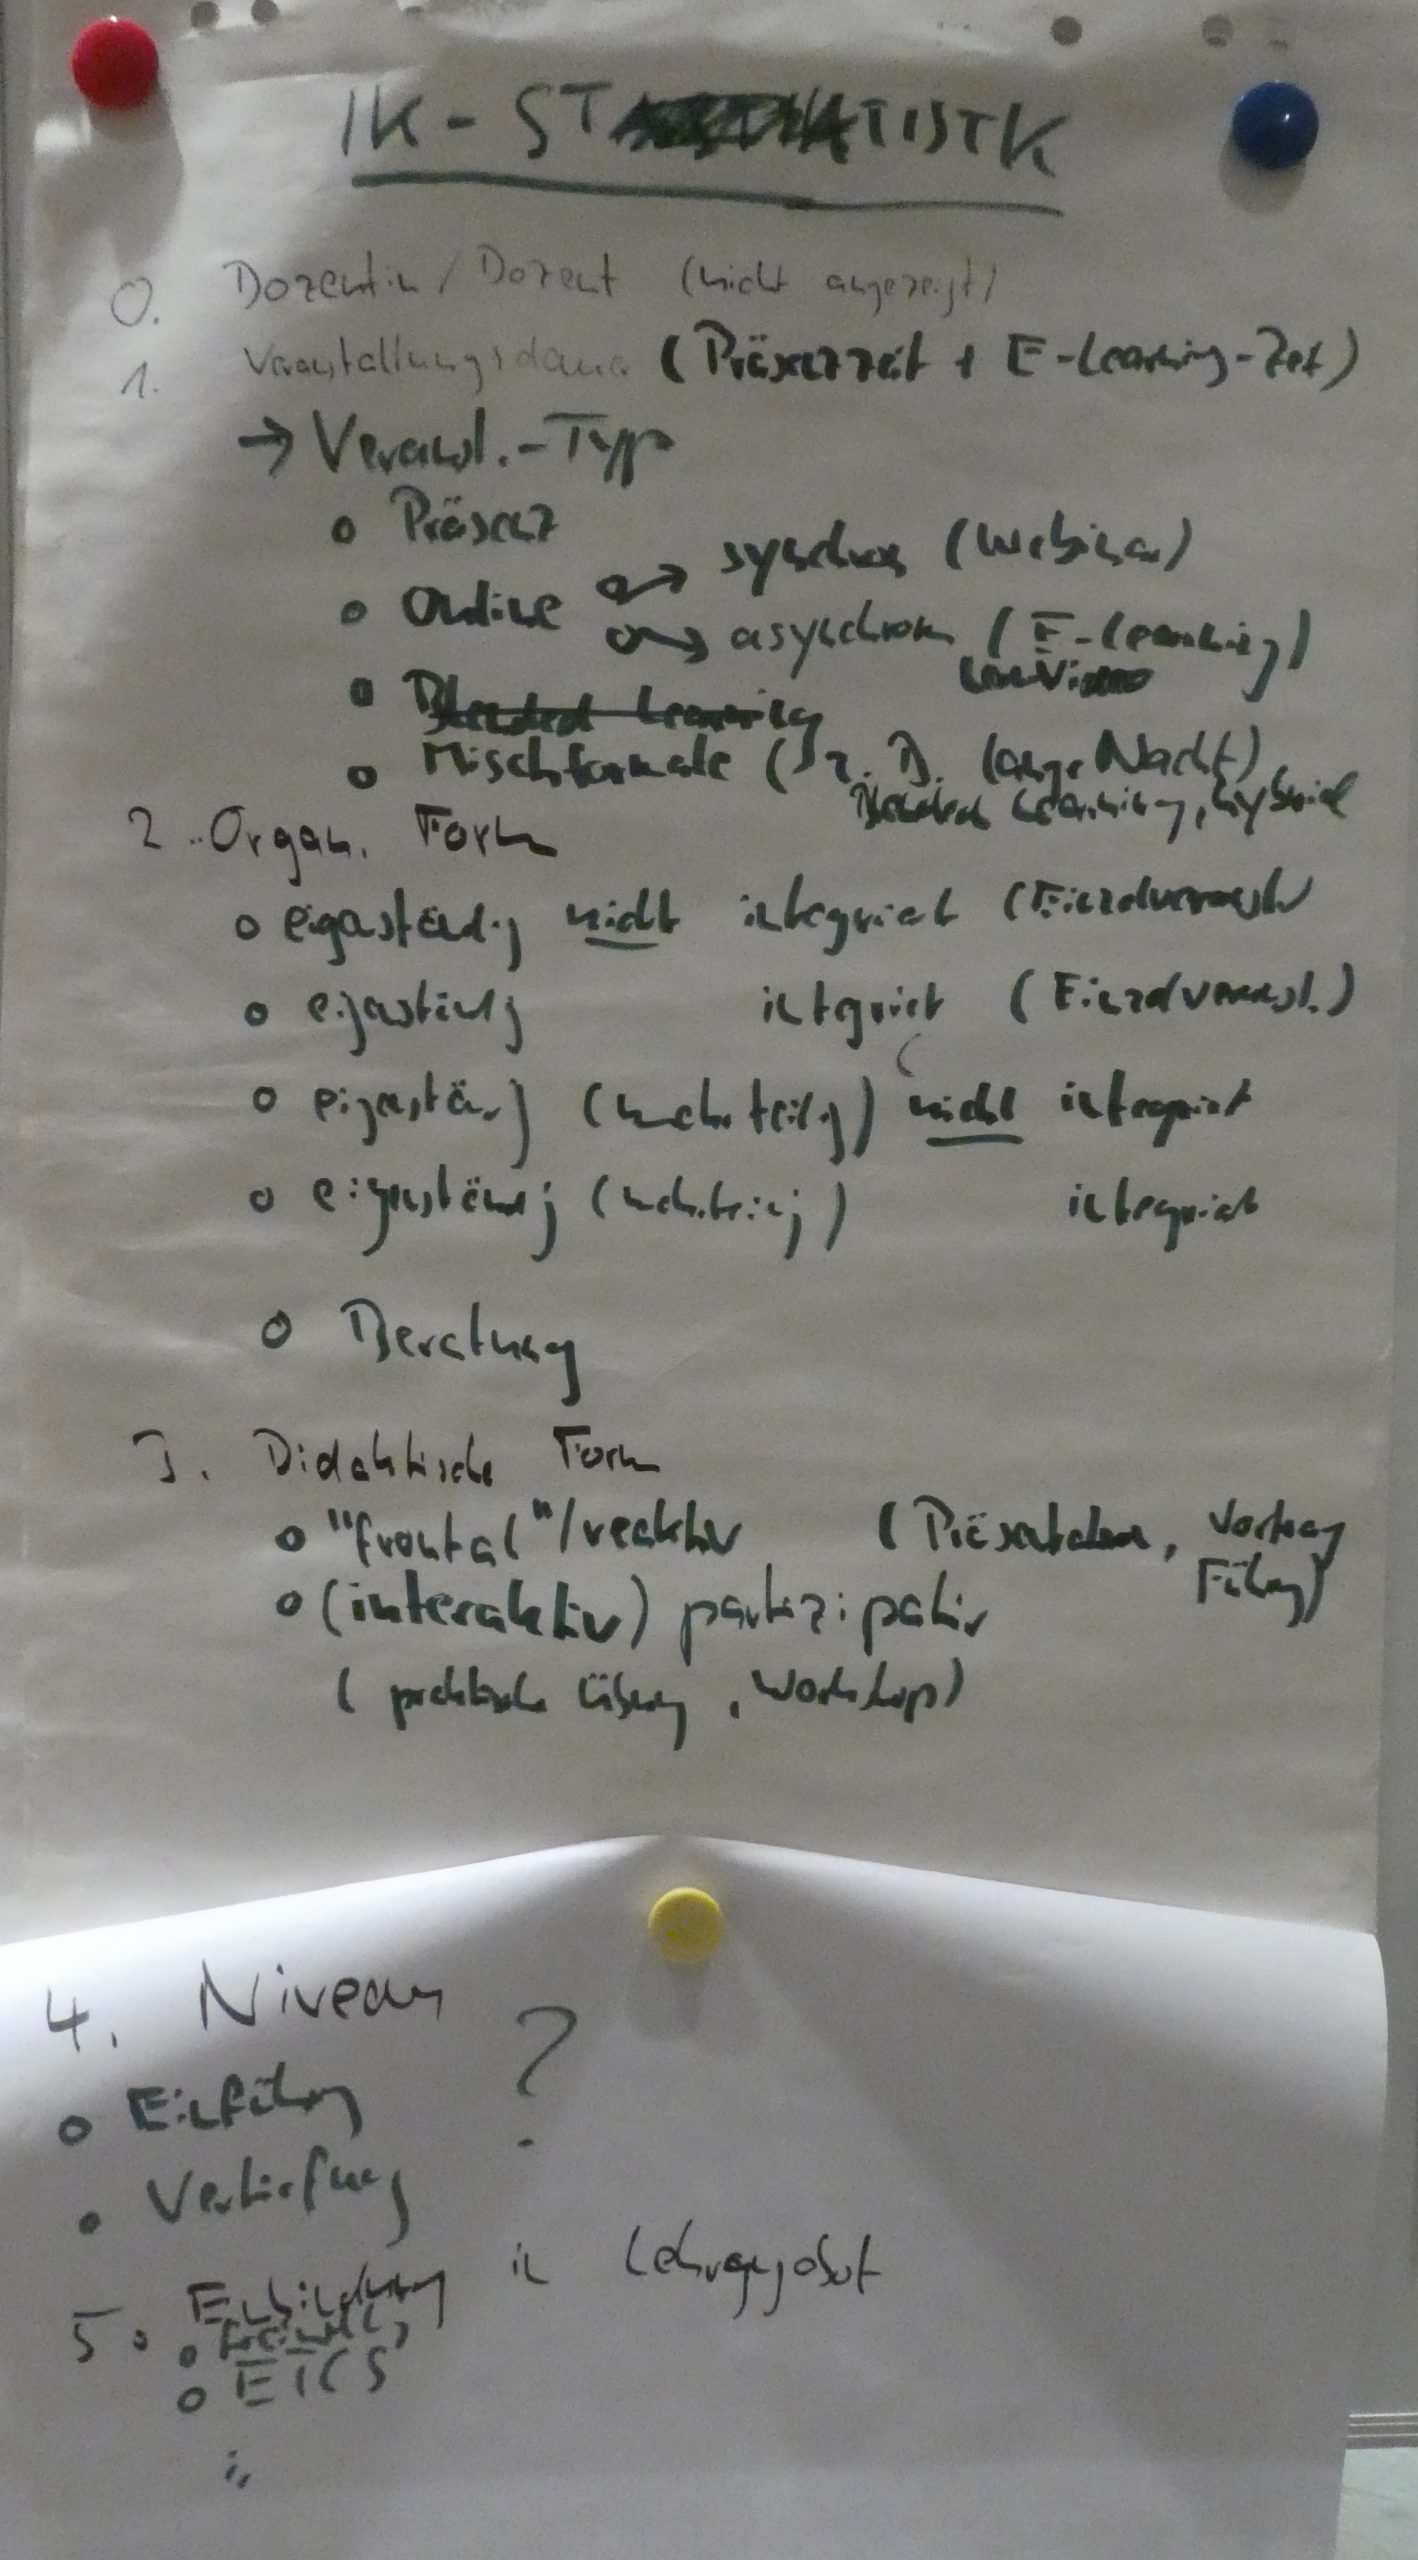 IK - STATISTK
0. Dozentin / Dozent (nicht angezeigt)
1. Veranstaltungsdauer (Präsenzzeit + E-Learning-Zeit)
→ Veranst.-Typ
o Präsenz
o Online → synchron (Webinar)
→ asynchron (E-Learning)
o Blended Learning
o Mischformate (z.B. Lange Nacht)
Blended Learning, hybrid
2. Organ. Form
o eigenständig nicht integriert (Einzelveranst.
o eigenständig integriert (Einzelveranst.)
o eigenständig (mehrteilig) nicht integriert
o eigenständig (mehrteilig) integriert
o Beratung
3. Didaktische Form
o "frontal"/reaktiv (Präsentation, Vortrag
Führung)
o (interaktiv) partizipativ
(praktische Übung, Workshop)
4. Niveau ?
o Einführung
o Vertiefung
5. Einbindung in Lehrangebot
o ETCS